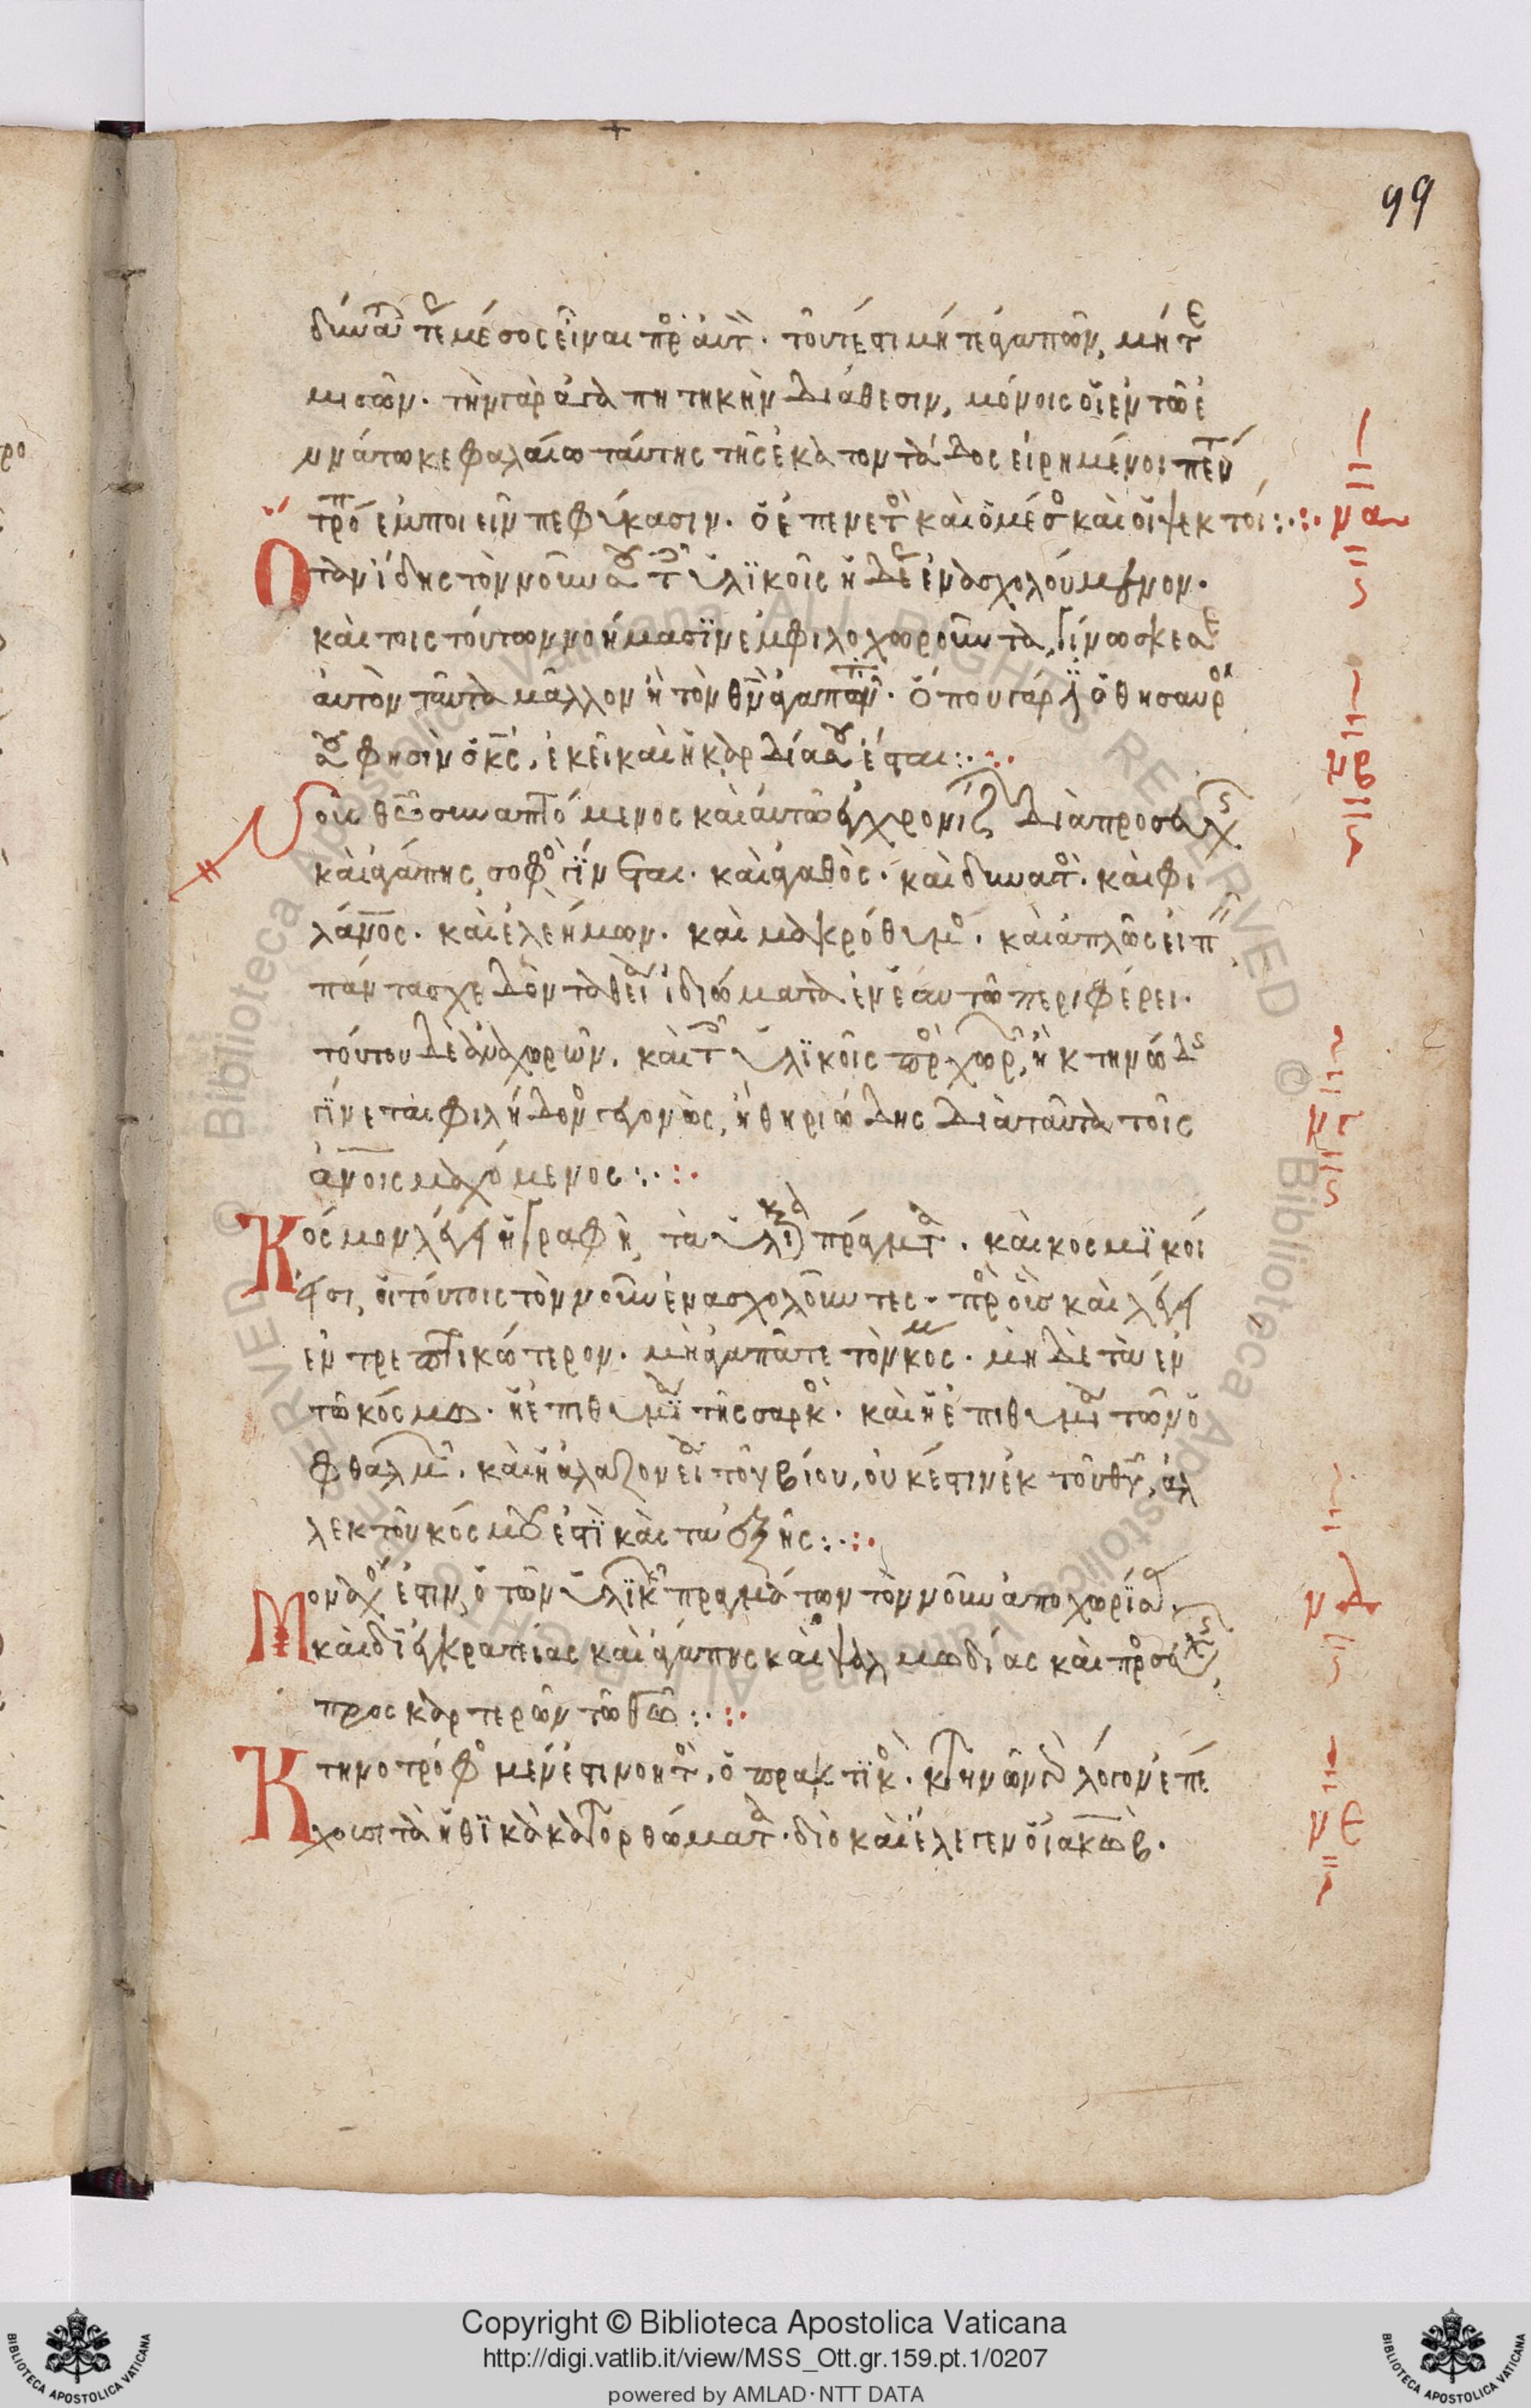 99
δύνατ τις μέσος εἶναι πρὸς αὐτ. τουτέστι μήτε ἀγαπῶν, μήτε
μισῶν. τὴν γὰρ ἀγαπητικὴν διάθεσιν, μόνοις οἱ ἐν τῶ ἐ
ννάτω κεφαλαίω ταύτης τῆς ἑκατοντάδος εἰρημένοι πέντε
τρόποι ἐμποιεῖν πεφύκασιν. ὁ ἐπαινετὸς καὶ ὁ μέσος καὶ οἱ ψεκτοί :·:· να
Ὅταν ἴδης τὸν νοῦν σου τοῖς ὑλικοῖς ἡδέως ἐνασχολούμενον.
καὶ τοῖς τούτων νοήμασιν ἐμφιλοχωροῦντα, γίνωσκε σε
αὐτὸν ταῦτα μᾶλλον ἢ τὸν θν ἀγαπᾶν. ὅπου γάρ ἐστιν ὁ θησαυρός
σου φησὶν ὁ κς, ἐκεῖ καὶ ἡ καρδία σου ἔσται :·:· νβ
Νοῦς θεῶ συναπτόμενος καὶ αὐτῶ ἐγχρονίζων διὰ προσευχῆς
καὶ ἀγάπης, σοφὸς γίνεται. καὶ ἀγαθὸς. καὶ δυνατὸς. καὶ φι
λάνος. καὶ ἐλεήμων. καὶ μακρόθυμος. καὶ ἁπλῶς εἰπεῖν
πάντα σχεδὸν τὰ θεῖα ἰδιώματα ἐν ἑαυτῶ περιφέρει.
τούτου δὲ ἀναχωρῶν, καὶ τοῖς ὑλικοῖς προσχωρῶν, ἢ κτηνώδης
γίνεται φιλήδονος γεγονὼς, ἢ θηριώδης διὰ ταῦτα τοῖς νγ
ἀνοις μαχόμενος :·:·
Κόσμον λέγει ἡ γραφὴ, τὰ ὑλικὰ πράγματα. καὶ κοσμικοί
εἰσι, οἱ τούτοις τὸν νοῦν ἐνασχολοῦντες. πρὸς οὓς καὶ λέγει
ἐντρεπτικώτερον. μὴ ἀγαπᾶτε τὸν κόσμ. μηδὲ τὰ ἐν
τῶ κόσμω. ἡ ἐπιθυμία τῆς σαρκὸς. καὶ ἡ ἐπιθυμία τῶν ὀ
φθαλμῶν. καὶ ἡ ἀλαζονεία τοῦ βίου, οὐκ ἔστιν ἐκ τοῦ θυ, ἀλ
λ ἐκ τοῦ κόσμου ἐστὶ καὶ τὰ ἑξῆς :·:·
Μοναχός ἐστιν, ὁ τῶν ὑλικῶν πραγμάτων τὸν νοῦν ἀποχωρίσας, νδ
καὶ δι ἐγκρατείας καὶ ἀγάπης καὶ ψαλμωδίας καὶ προσευχῆς,
προσκαρτερῶν τῶ θῶ :·:·
Κτηνοτρόφος μέν ἐστι νοητὸς, ὁ πρακτικὸς. κτηνῶν γὰρ λόγον ἐπέ
χουσι τὰ ἠθικὰ κατορθώματα. διὸ καὶ ἔλεγεν ὁ ἰακώβ. νε
Copyright © Biblioteca Apostolica Vaticana
http://digi.vatlib.it/view/MSS_Ott.gr.159.pt.1/0207
powered by AMLAD·NTT DATA